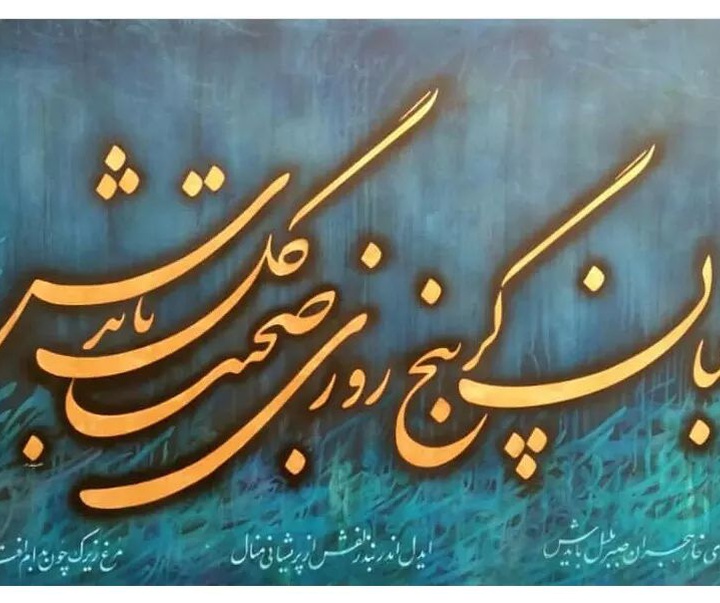 بان گر پنج روزی صحبت گل بایدش
ی خار هجران صبر بلبل بایدش ایدل اندر بند زلفش از پریشانی منال مرغ زیرک چون بدام افت